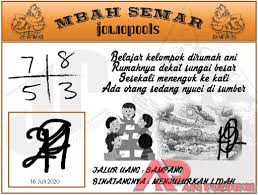 MBAH SEMAR
jowopools
7 8
5 3
Belajar kelompok dirumah ani
Rumahnya dekat sungai besar
Sesekali menengok ke kali
Ada orang sedang nyuci di sumber
16 Juli 2020
JALUR UANG : GAMPANG
BINATANGNYA : MENJULURKAN LIDAH